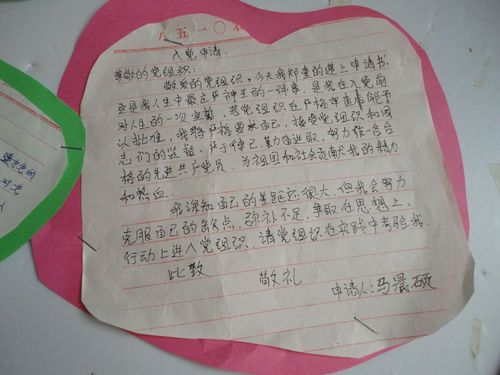 八五一〇
入党申请
尊敬的党组织:
敬爱的党组织,今天我郑重的递上申请书,
这是我人生中最庄严神圣的一件事,是我在入党前
对人生的一次宣誓,若党组织在严格审查后能予
以批准,我将严格要求自己,接受党组织和同
志们的监督,严于律己,勤奋进取,努力作一名合
格的先进共产党员,为祖国和社会贡献我的精力
和热血。
我深知自己的差距还很大,但我会努力
克服自己的缺点,弥补不足,争取在思想上、
行动上进入党组织,请党组织在实践中考验我.
此致 敬礼
申请人:冯晨硕